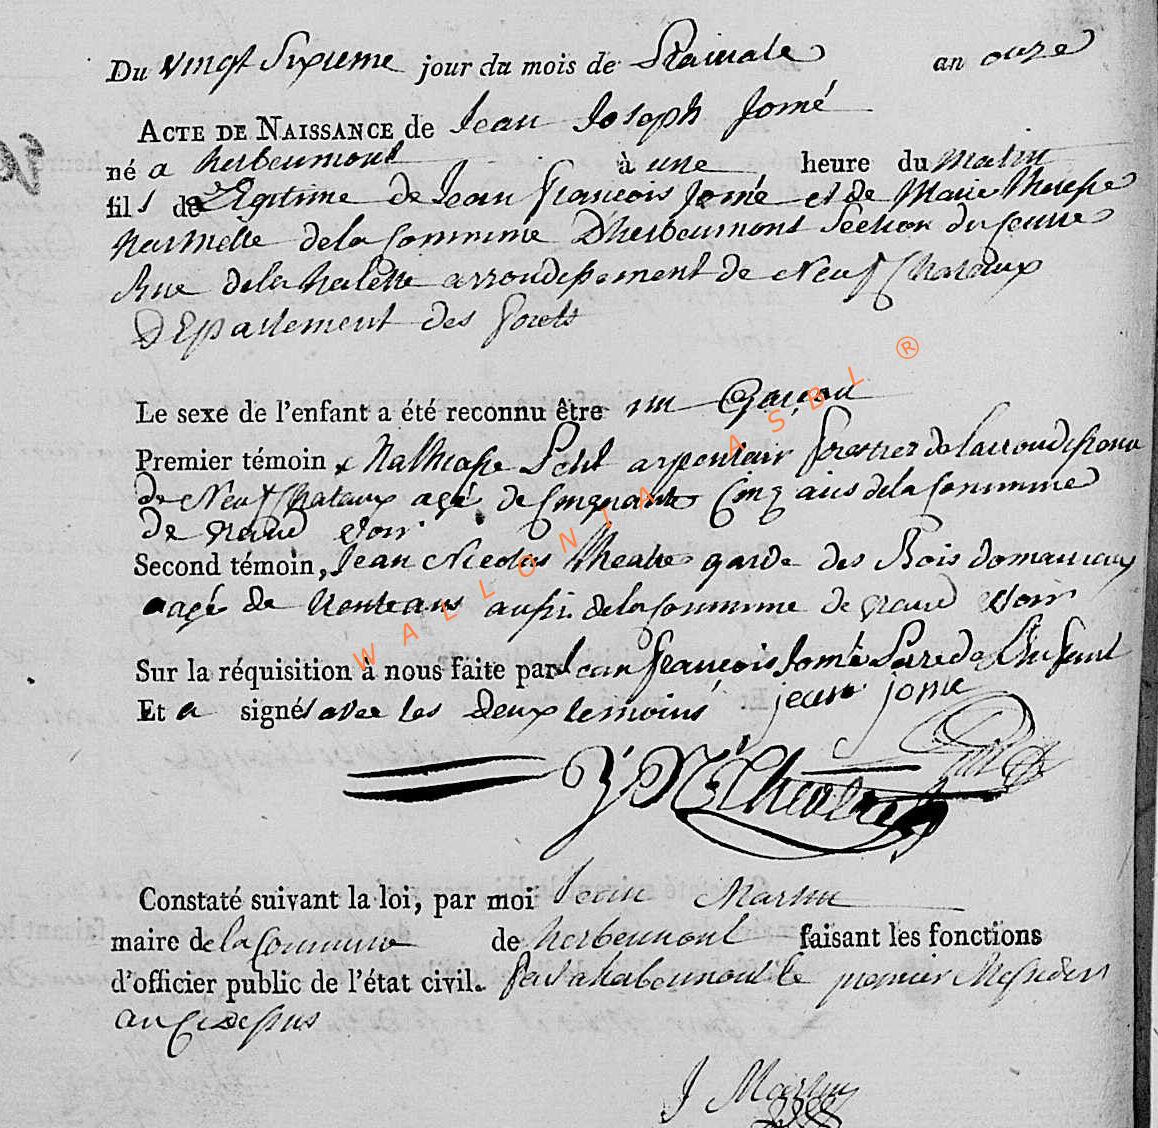 Du vingt Sixieme jour du mois de Prairiale an onze
ACTE DE NAISSANCE de Jean Joseph Jomé
né a herbeumont à une heure du matin
fils de Legitime de Jean françois Jomé et de Marie therese
de la Commune D'herbeumont Section du Centre
Rue de la arrondissement de Neufchataux
DEpartement des forets
Le sexe de l'enfant a été reconnu être un Garçon
Premier témoin Petit arpenteur forestier de larrondissemen
de Neufchataux agé de Cinquante Cinq ans de la Commune
de grand voir
Second témoin, Jean Nicolas garde des Bois domaniaux
agé de trente ans aussi de la Commune de grand voir
Sur la réquisition à nous faite par Jean françois Jomé Pere de L'enfant
Et a signé avec les deux temoins jean jome
J N
Constaté suivant la loi, par moi Jean Martin
maire de la Commune de herbeumont faisant les fonctions
d'officier public de l'état civil. fait a herbeumont le premier Messidor
an Ci dessus
J Martin
WALLONIA ASBL ®